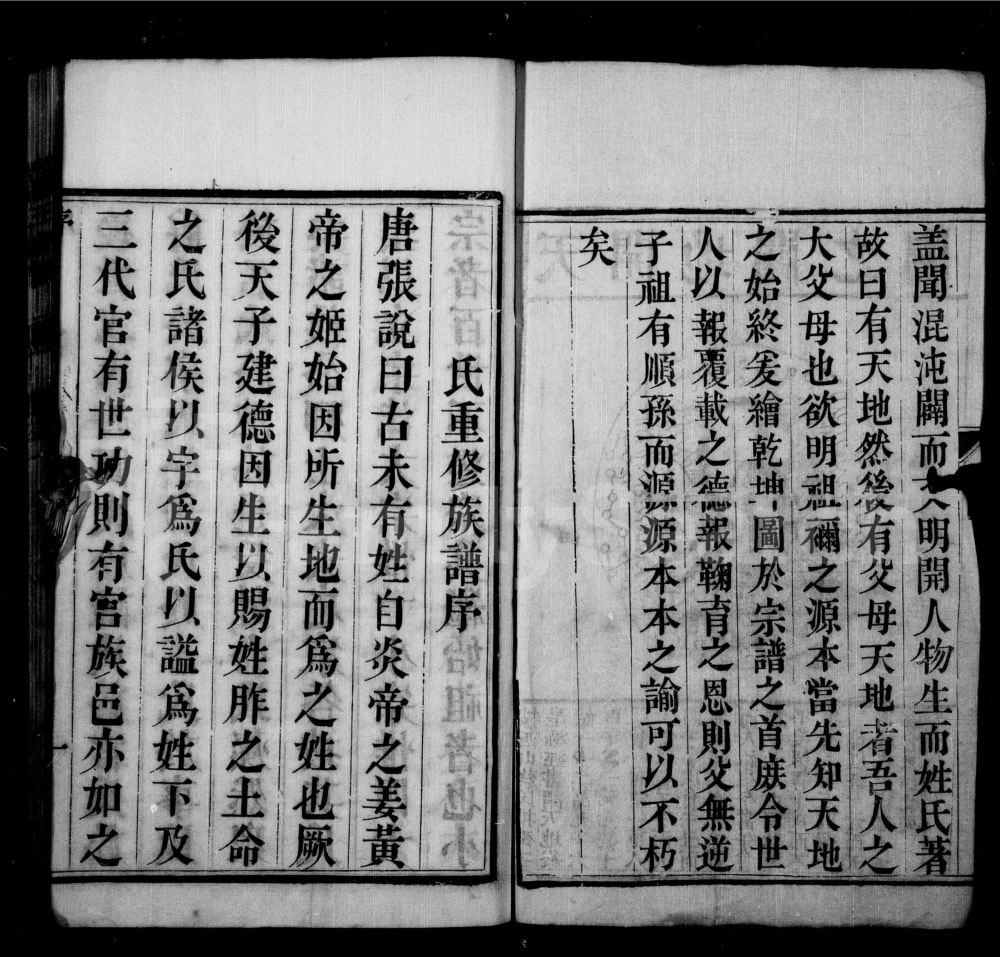 盖聞混沌闢而文明開人物生而姓氏著
故曰有天地然後有父母天地者吾人之
大父母也欲明祖禰之源本當先知天地
之始終爰繪乾坤圖於宗譜之首庶令世
人以報覆載之德報鞠育之恩則父無逆
子祖有順孫而源源本本之諭可以不朽
矣
氏重修族譜序
唐張說曰古未有姓自炎帝之姜黃
帝之姬始因所生地而爲之姓也厥
後天子建德因生以賜姓胙之土命
之氏諸侯以字爲氏以謚爲姓下及
三代官有世功則有官族邑亦如之
序
一